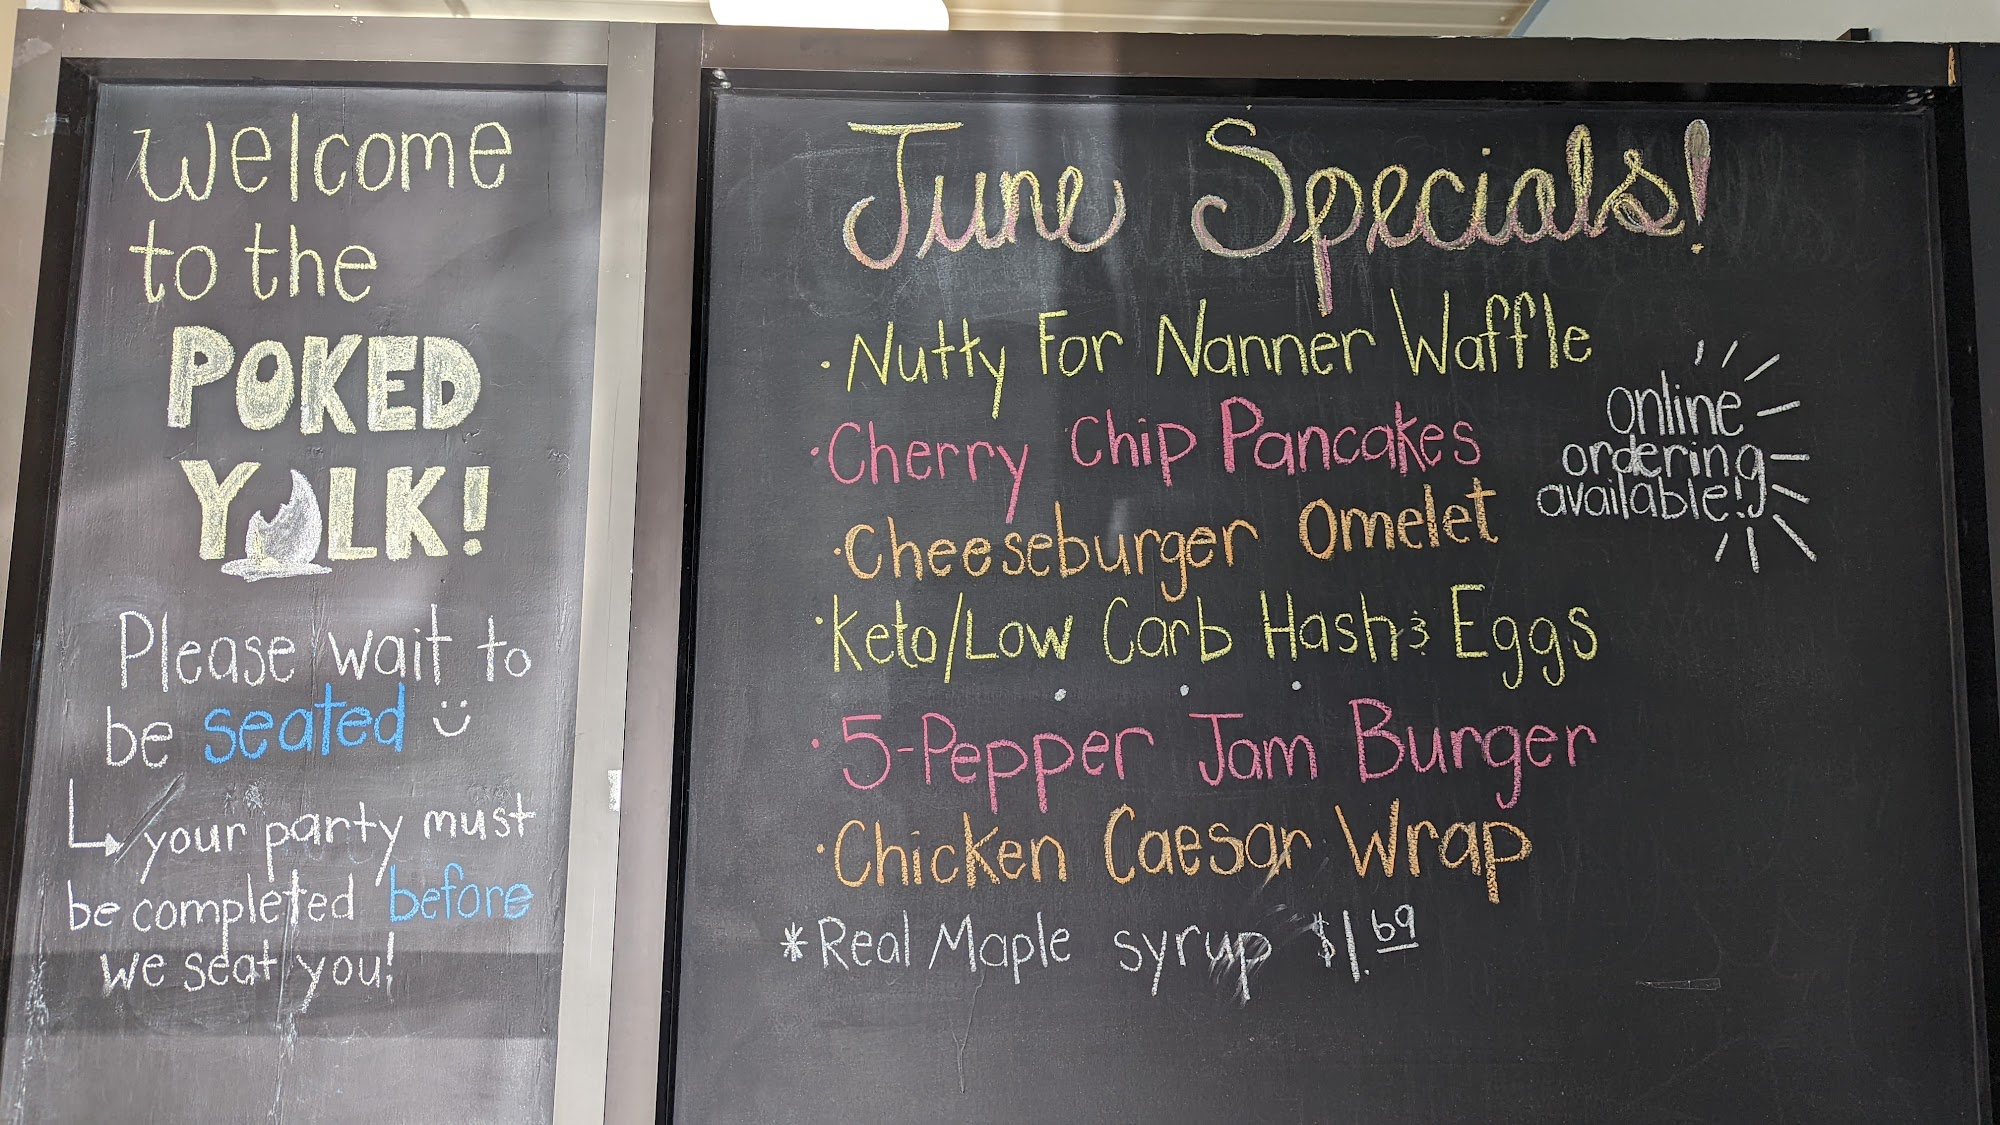 Welcome
to the
POKED
YOLK!
Please wait to
be seated
your party must
be completed before
we seat you!
June Specials!
• Nutty For Nanner Waffle
• Cherry Chip Pancakes
• Cheeseburger Omelet
• Keto/Low Carb Hash & Eggs
• 5-Pepper Jam Burger
• Chicken Caesar Wrap
*Real Maple syrup $1.69
online
ordering
available!